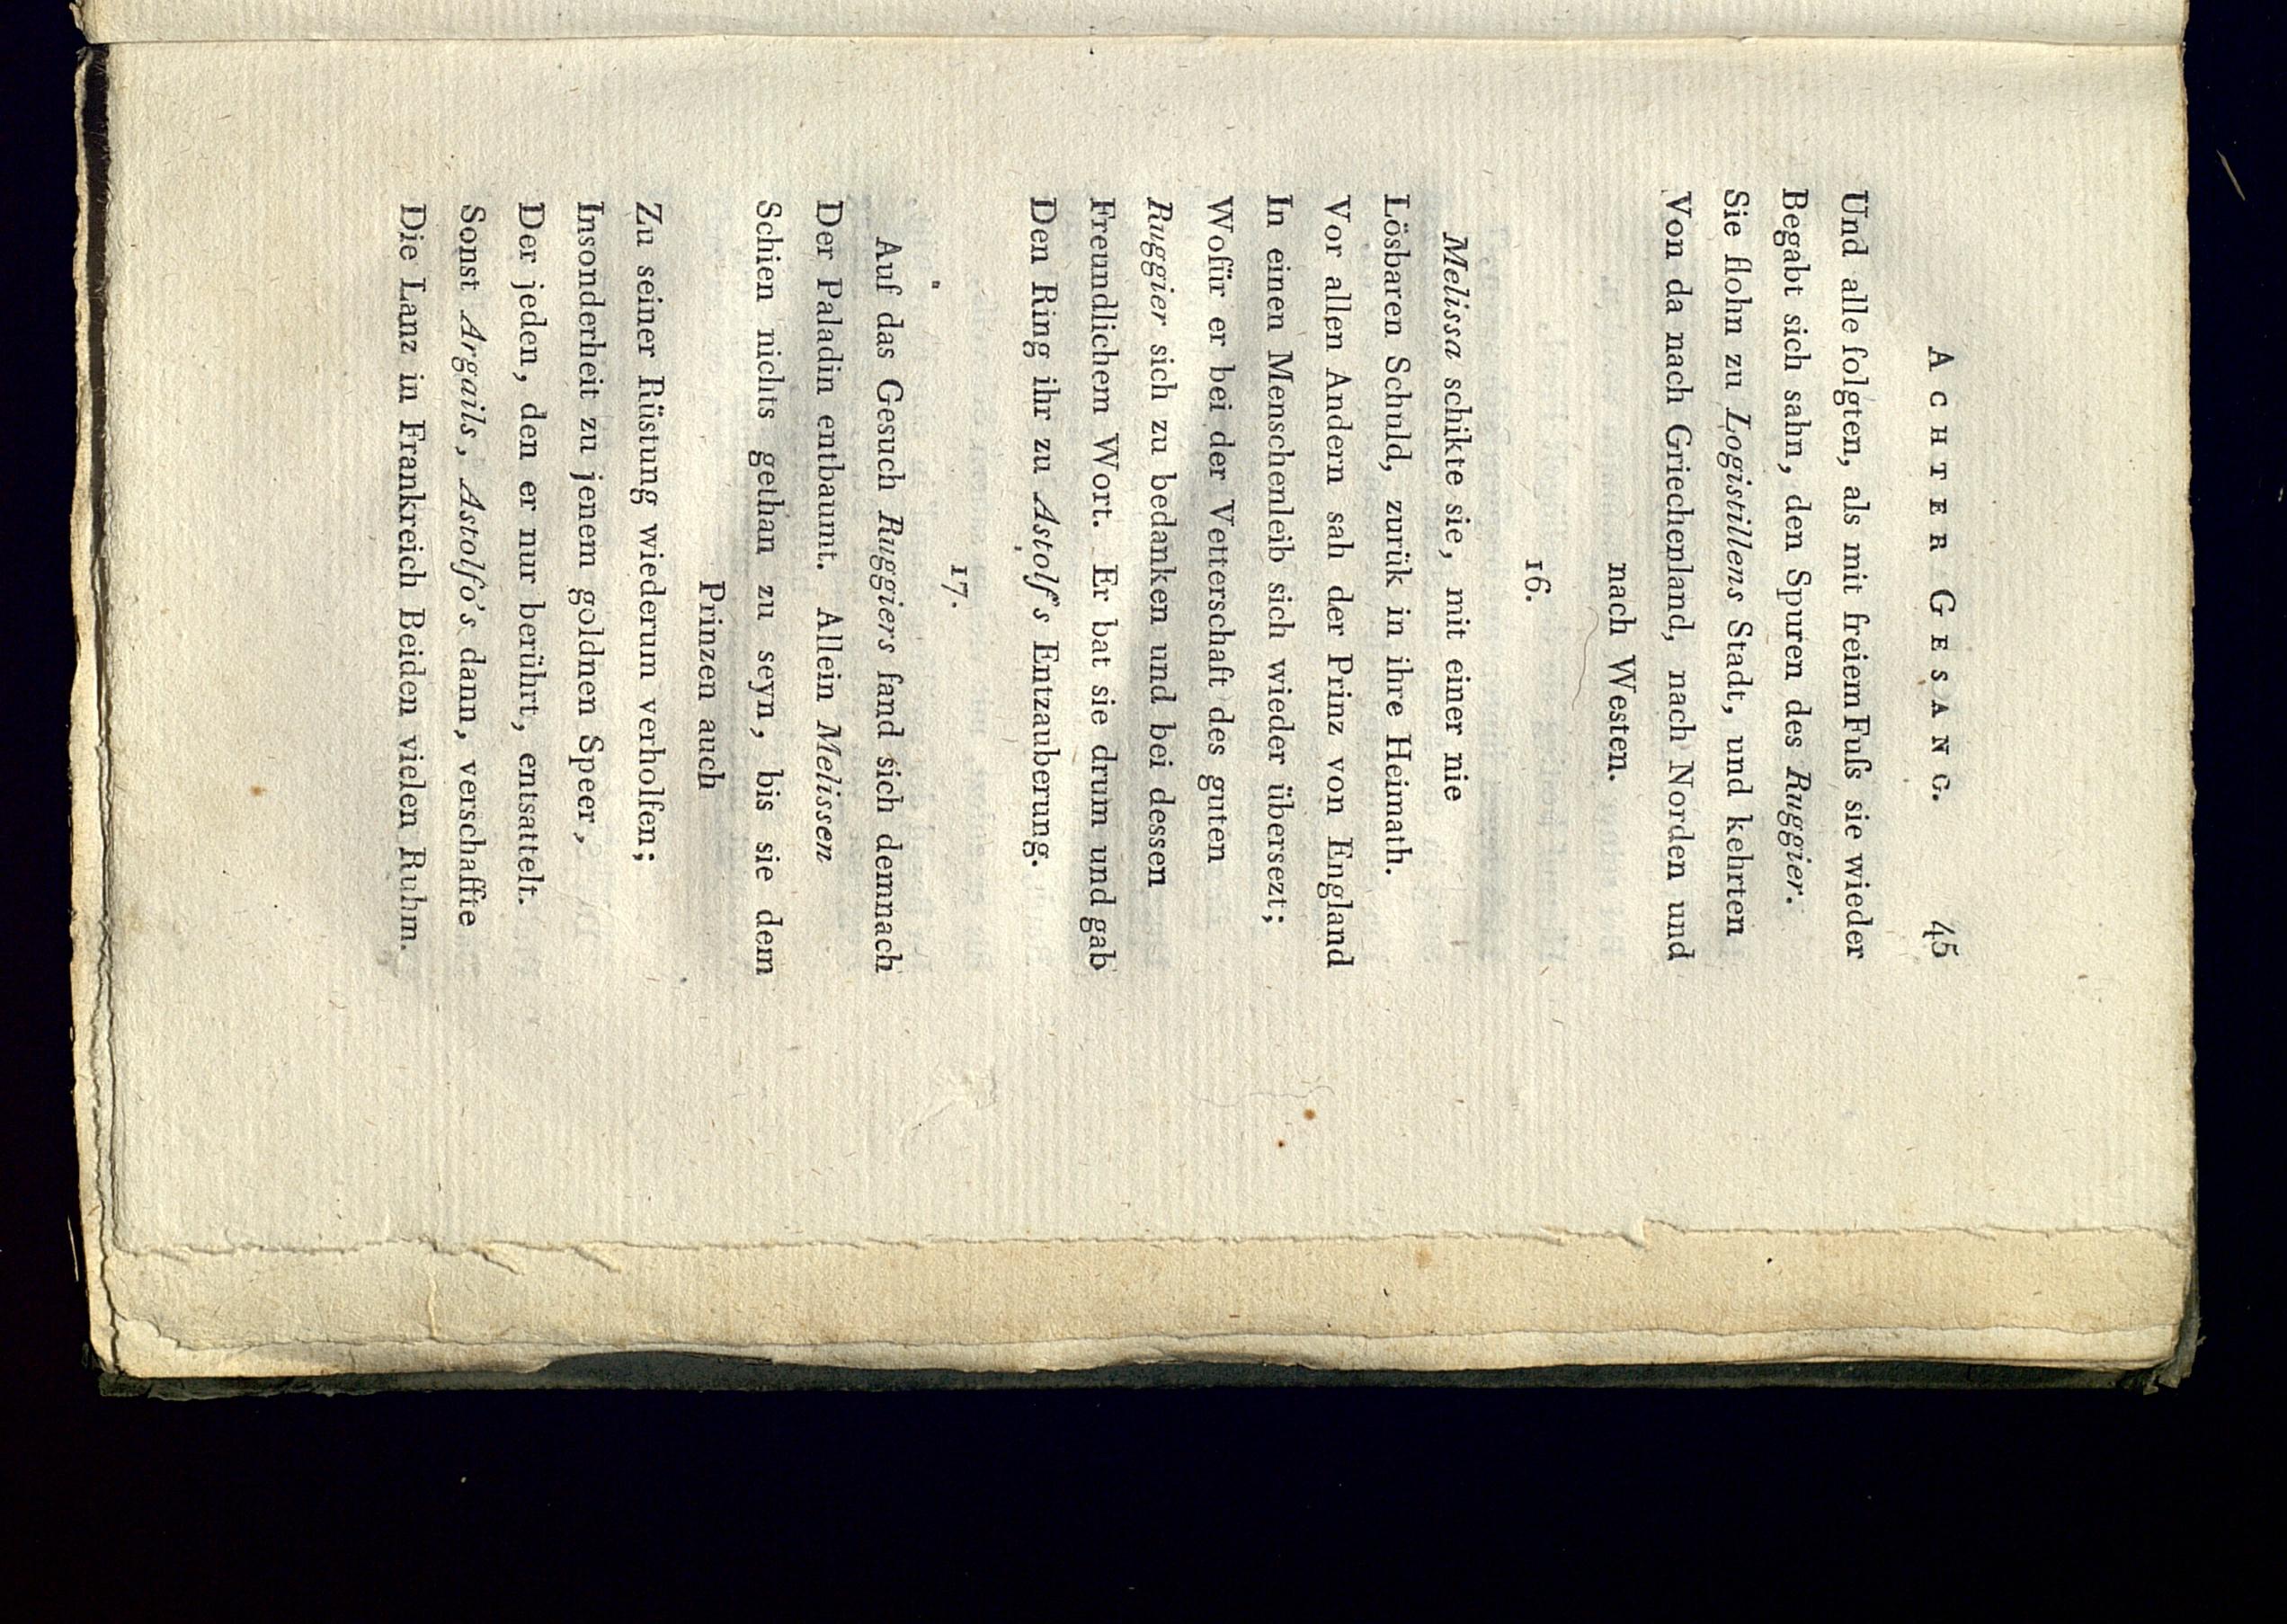 ACHTER GESANG. 45
Und alle folgten, als mit freiem Fuſs sie wieder
Begabt sich sahn, den Spuren des Ruggier.
Sie flohn zu Logistillens Stadt, und kehrten
Von da nach Griechenland, nach Norden und
nach Westen.
16.
Melissa schikte sie, mit einer nie
Lösbaren Schuld, zurük in ihre Heimath.
Vor allen Andern sah der Prinz von England
In einen Menschenleib sich wieder übersezt;
Wofür er bei der Vetterschaft des guten
Ruggier sich zu bedanken und bei dessen
Freundlichem Wort. Er bat sie drum und gab
Den Ring ihr zu Astolf's Entzauberung.
17.
Auf das Gesuch Ruggiers fand sich demnach
Der Paladin entbaumt. Allein Melissen
Schien nichts gethan zu seyn, bis sie dem
Prinzen auch
Zu seiner Rüstung wiederum verholfen;
Insonderheit zu jenem goldnen Speer,
Der jeden, den er nur berührt, entsattelt.
Sonst Argails, Astolfo's dann, verschaffte
Die Lanz in Frankreich Beiden vielen Ruhm.